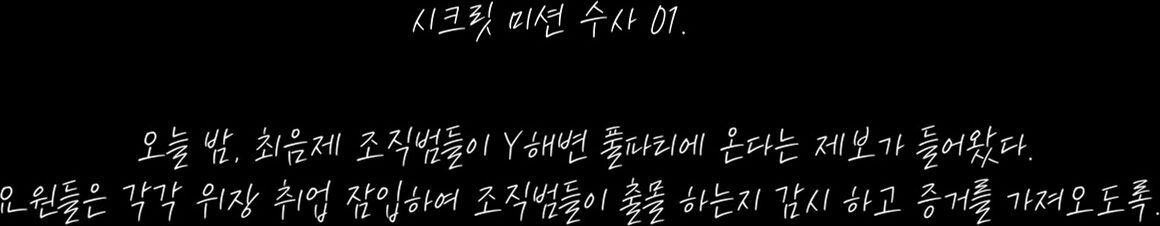 시크릿 미션 수사 01.
오늘 밤, 최음제 조직범들이 Y해변 풀파티에 온다는 제보가 들어왔다.
요원들은 각각 위장 취업 잠입하여 조직범들이 출몰 하는지 감시 하고 증거를 가져오도록.